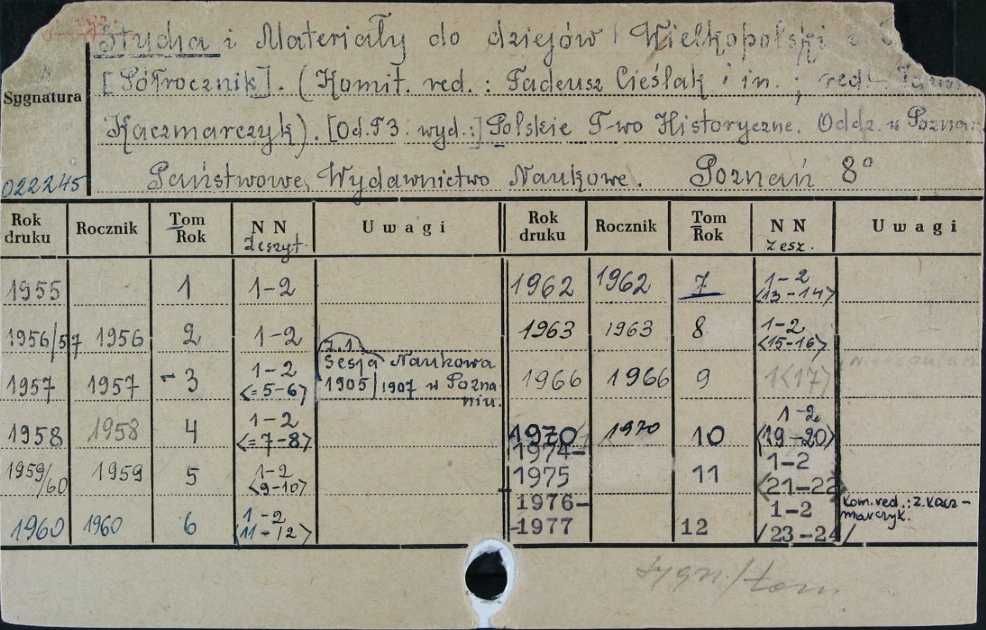 Studia i Materiały do dziejów Wielkopolski i
[Półrocznik]. (Komit. red. : Tadeusz Cieślak i in. ; red.
Sygnatura
Kaczmarczyk). [Od. T 3 wyd.:] Polskie T-wo Historyczne. Oddz. w Pozna
022245 Państwowe Wydawnictwo Naukowe. Poznań 8°
Rok druku Rocznik Tom Rok N N Zeszyt U w a g i Rok druku Rocznik Tom Rok N N Zesz. U w a g i
1955 1 1-2 1962 1962 7 1-2 <13-14>
1956/57 1956 2 1-2 1963 1963 8 1-2 <15-16>
1957 1957 - 3 1-2 <=5-6> z.1 Sesja Naukowa 1905/1907 w Poznaniu. 1966 1966 9 1<17>
1958 1958 4 1-2 <=7-8> 1970/ 1970 10 1-2 <19-20>
1959/60 1959 5 1-2 <9-10> 1974-1975 11 1-2 <21-22>
1960 1960 6 1-2 <11-12> 1976-1977 12 1-2 /23-24/ Kom. red.: Z. Kaczmarczyk.
sygn./tom.